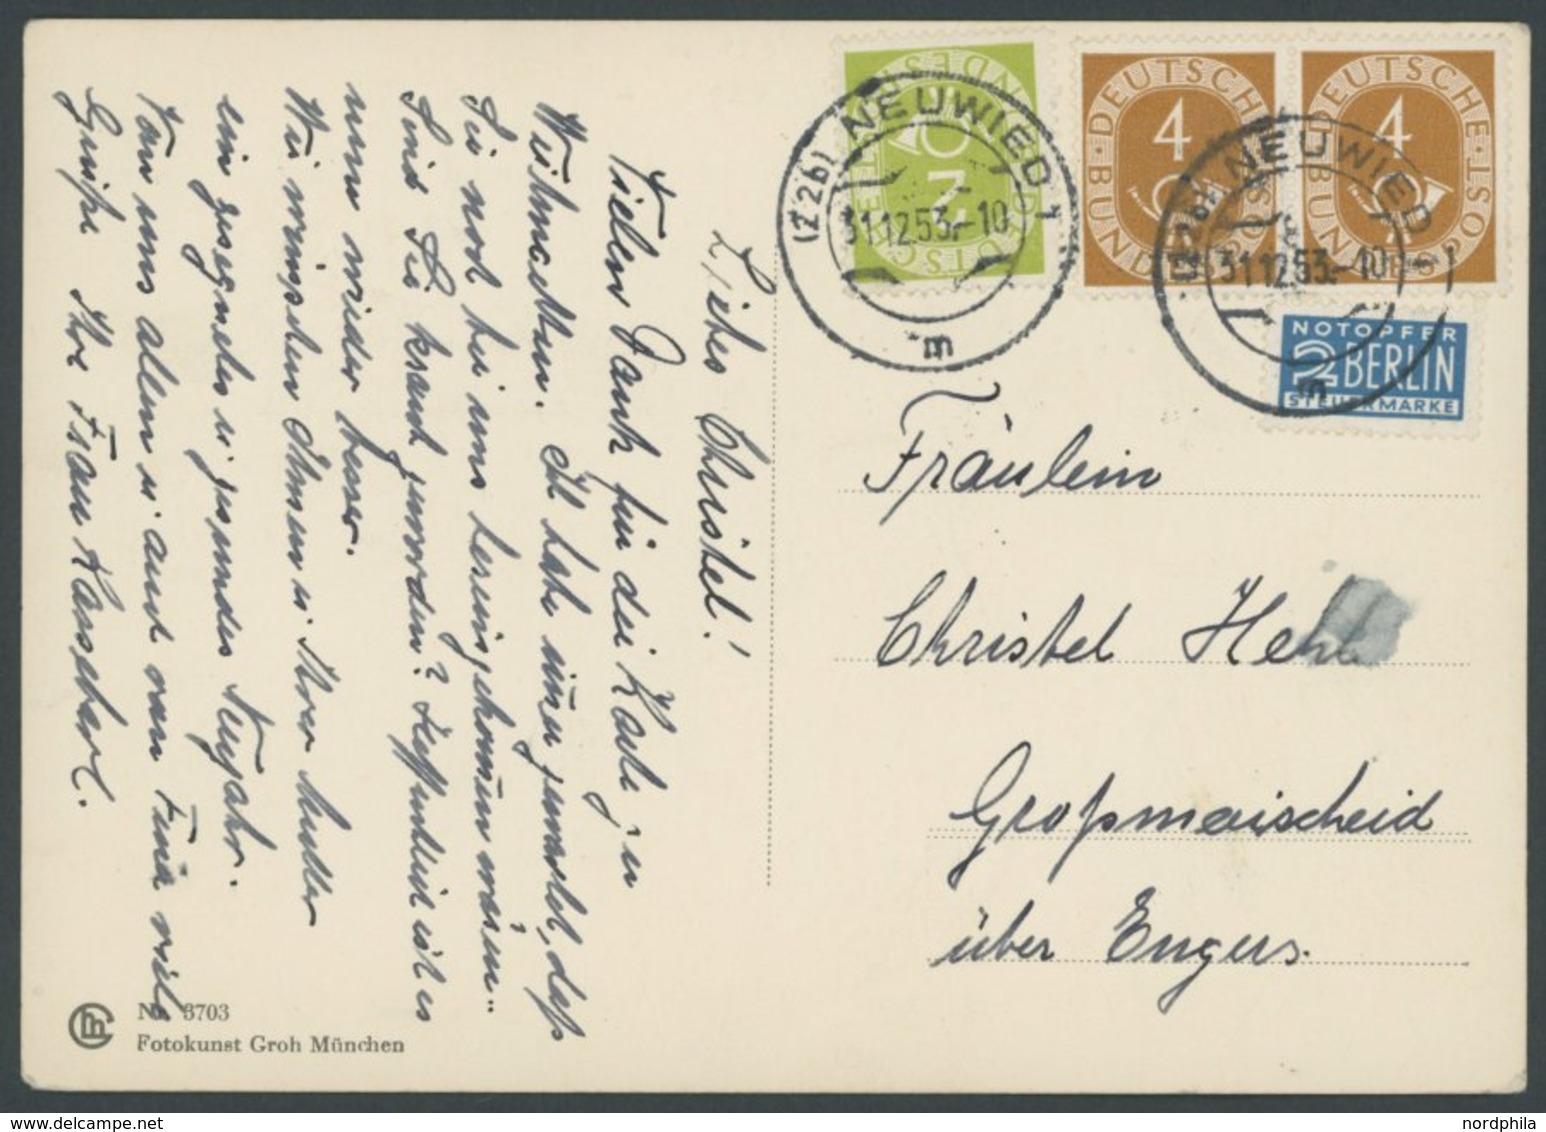 Liebes Christel!
Vielen Dank für die Karte zu
Weihnachten. Ich habe immer gewartet, daß
Sie noch bei uns hereingekommen wären.
Sind Sie krank geworden? Hoffentlich ist es
nun wieder besser.
Wir wünschen Ihnen u. Ihrer Mutter
ein gesegnetes u. gesundes Neujahr.
Von uns allen u. auch von viele
Grüße Ihre Frau
Nr. 3703
Fotokunst Groh München
(22b) NEUWIED 1
31.12.53.-10
m
DEUTSCHE BUNDESPOST
2
DEUTSCHE BUNDESPOST
4
DEUTSCHE POST BUNDES
4
(22b) NEUWIED 1
31.12.53.-10
m
NOTOPFER
2 BERLIN
STEUERMARKE
Fräulein
Christel
Großmaischeid
über Engers.
www.delcampe.net
nordphila